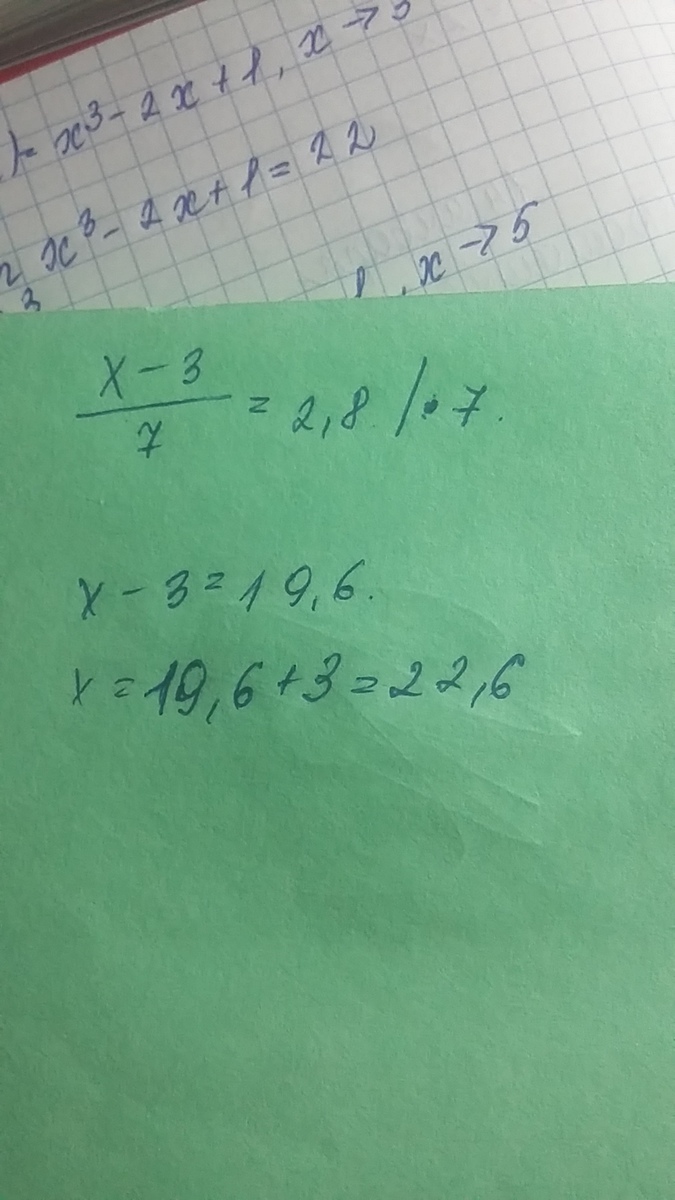 )= x³ - 2x + 1, x → 3
x³ - 2x + 1 = 22
1, x → 5
x - 3 / 7 = 2,8 / • 7.
x - 3 = 19,6.
x = 19,6 + 3 = 22,6